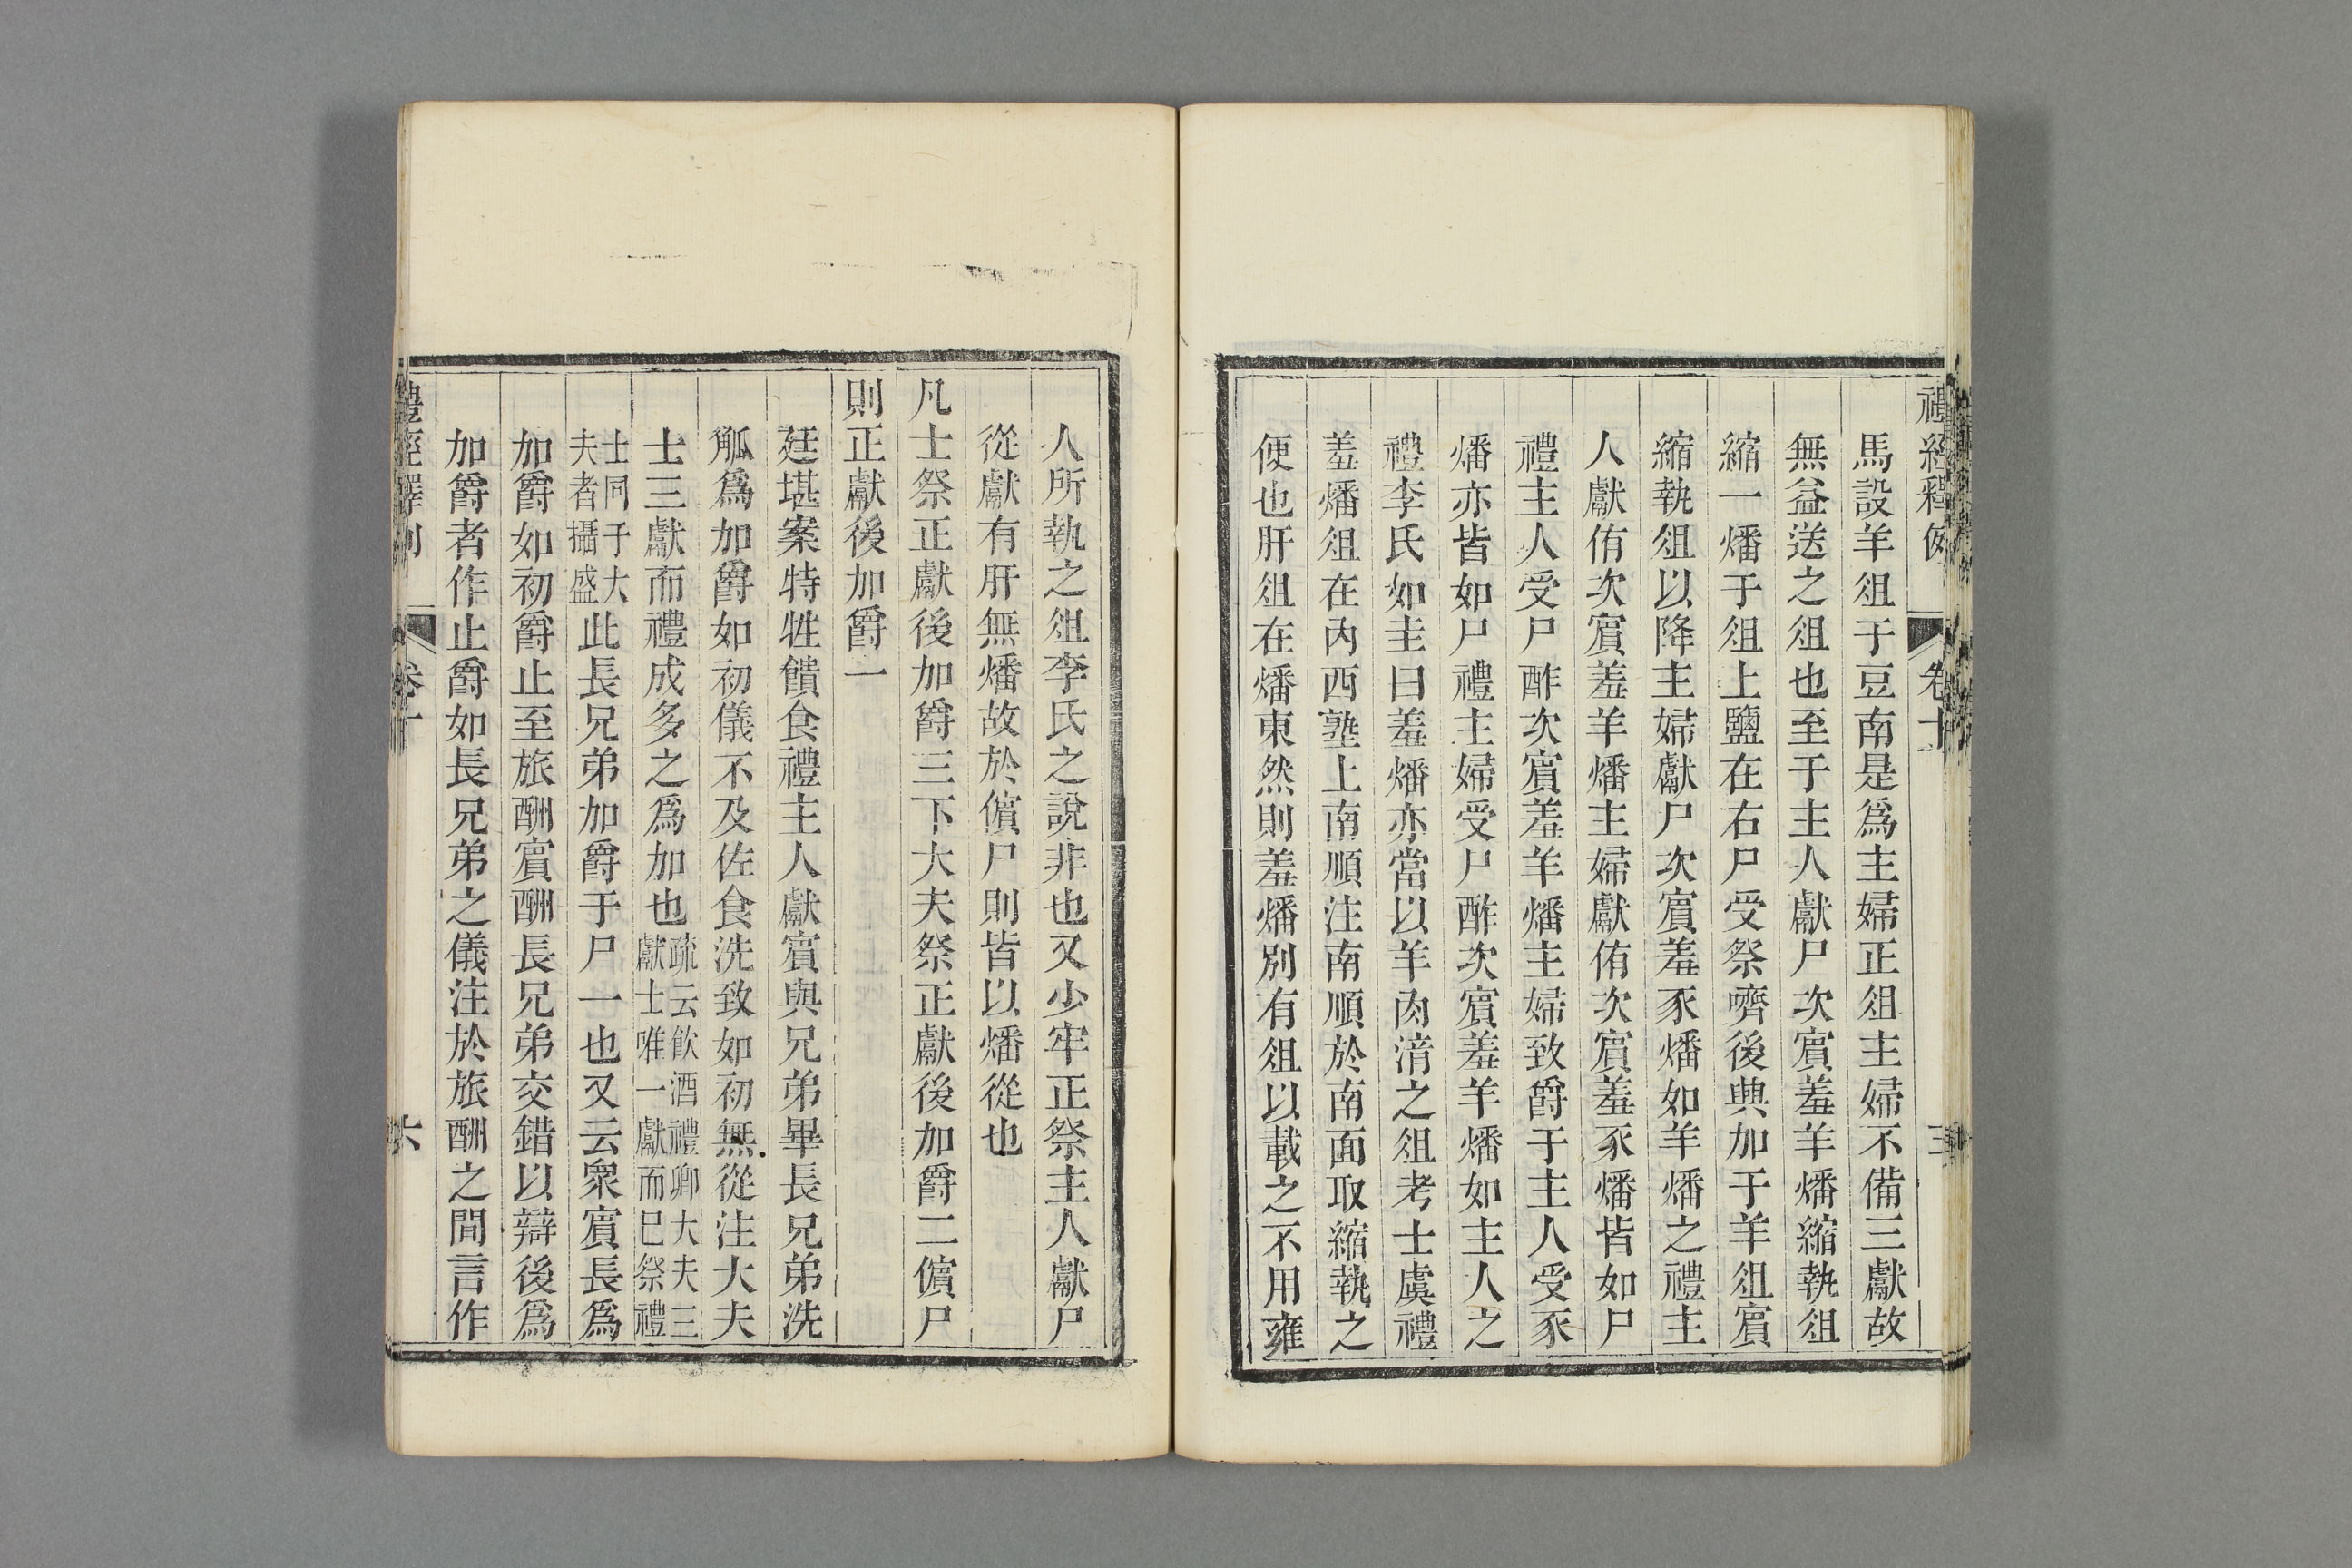 禮經釋例 卷十
馬設羊俎于豆南是爲主婦正俎主婦不備三獻故
無益送之俎也至于主人獻尸次賓羞羊燔縮執俎
縮一燔于俎上鹽在右尸受祭嚌後興加于羊俎賓
縮執俎以降主婦獻尸次賓羞豕燔如羊燔之禮主
人獻侑次賓羞羊燔主婦獻侑次賓羞豕燔皆如尸
禮主人受尸酢次賓羞羊燔主婦致爵于主人受豕
燔亦皆如尸禮主婦受尸酢次賓羞羊燔如主人之
禮李氏如圭曰羞燔亦當以羊肉湆之俎考士虞禮
羞燔俎在內西塾上南順注南順於南面取縮執之
便也肝俎在燔東然則羞燔別有俎以載之不用雍
人所執之俎李氏之說非也又少牢正祭主人獻尸
從獻有肝無燔故於儐尸則皆以燔從也
凡士祭正獻後加爵三下大夫祭正獻後加爵二儐尸
則正獻後加爵一
廷堪案特牲饋食禮主人獻賓與兄弟畢長兄弟洗
觚爲加爵如初儀不及佐食洗致如初無從注大夫
士三獻而禮成多之爲加也疏云飲酒禮卿大夫三獻士唯一獻而巳祭禮
士同于大夫者攝盛此長兄弟加爵于尸一也又云衆賓長爲
加爵如初爵止至旅酬賓酬長兄弟交錯以辯後爲
加爵者作止爵如長兄弟之儀注於旅酬之間言作
禮經釋例 卷十 六